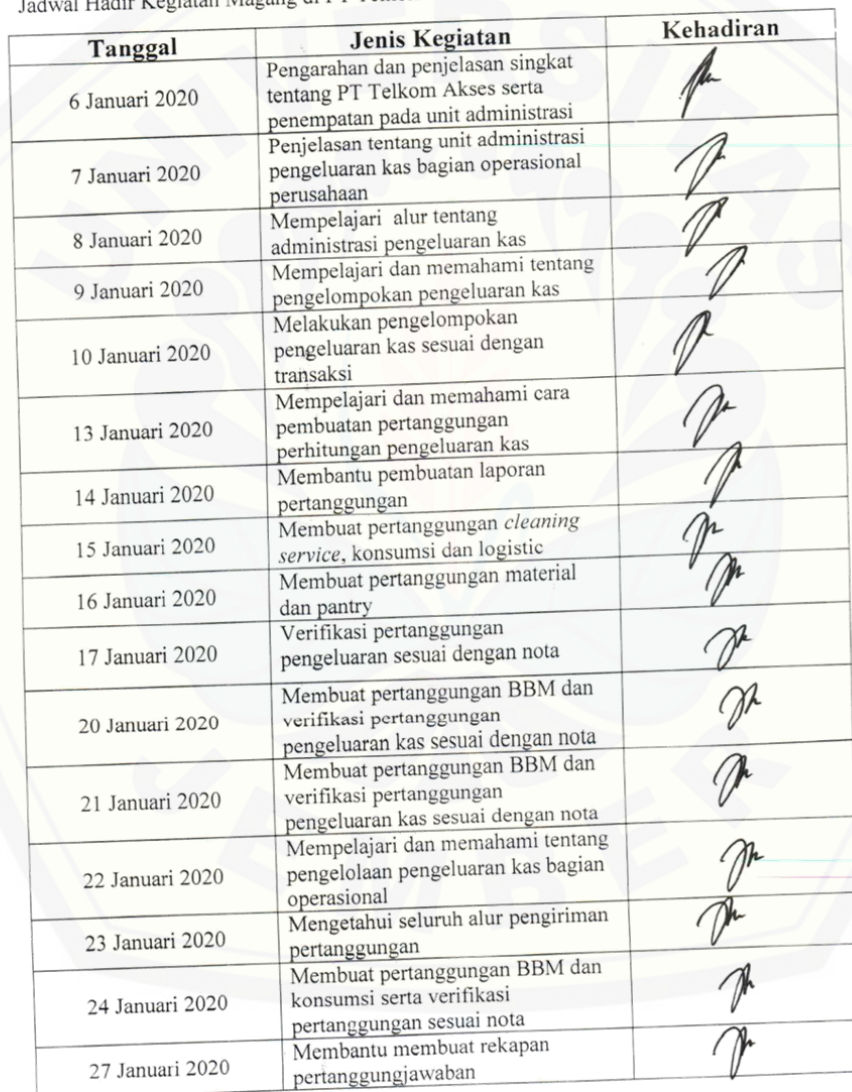 Jadwal Hadir Kegiatan Magang di PT
Tanggal Jenis Kegiatan Kehadiran
6 Januari 2020
Pengarahan dan penjelasan singkat
tentang PT Telkom Akses serta
penempatan pada unit administrasi
7 Januari 2020
Penjelasan tentang unit administrasi
pengeluaran kas bagian operasional
perusahaan
8 Januari 2020
Mempelajari alur tentang
administrasi pengeluaran kas
9 Januari 2020
Mempelajari dan memahami tentang
pengelompokan pengeluaran kas
10 Januari 2020
Melakukan pengelompokan
pengeluaran kas sesuai dengan
transaksi
13 Januari 2020
Mempelajari dan memahami cara
pembuatan pertanggungan
perhitungan pengeluaran kas
14 Januari 2020
Membantu pembuatan laporan
pertanggungan
15 Januari 2020
Membuat pertanggungan cleaning
service, konsumsi dan logistic
16 Januari 2020
Membuat pertanggungan material
dan pantry
17 Januari 2020
Verifikasi pertanggungan
pengeluaran sesuai dengan nota
20 Januari 2020
Membuat pertanggungan BBM dan
verifikasi pertanggungan
pengeluaran kas sesuai dengan nota
21 Januari 2020
Membuat pertanggungan BBM dan
verifikasi pertanggungan
pengeluaran kas sesuai dengan nota
22 Januari 2020
Mempelajari dan memahami tentang
pengelolaan pengeluaran kas bagian
operasional
23 Januari 2020
Mengetahui seluruh alur pengiriman
pertanggungan
24 Januari 2020
Membuat pertanggungan BBM dan
konsumsi serta verifikasi
pertanggungan sesuai nota
27 Januari 2020
Membantu membuat rekapan
pertanggungjawaban
UNIVERSITAS
JEMBER